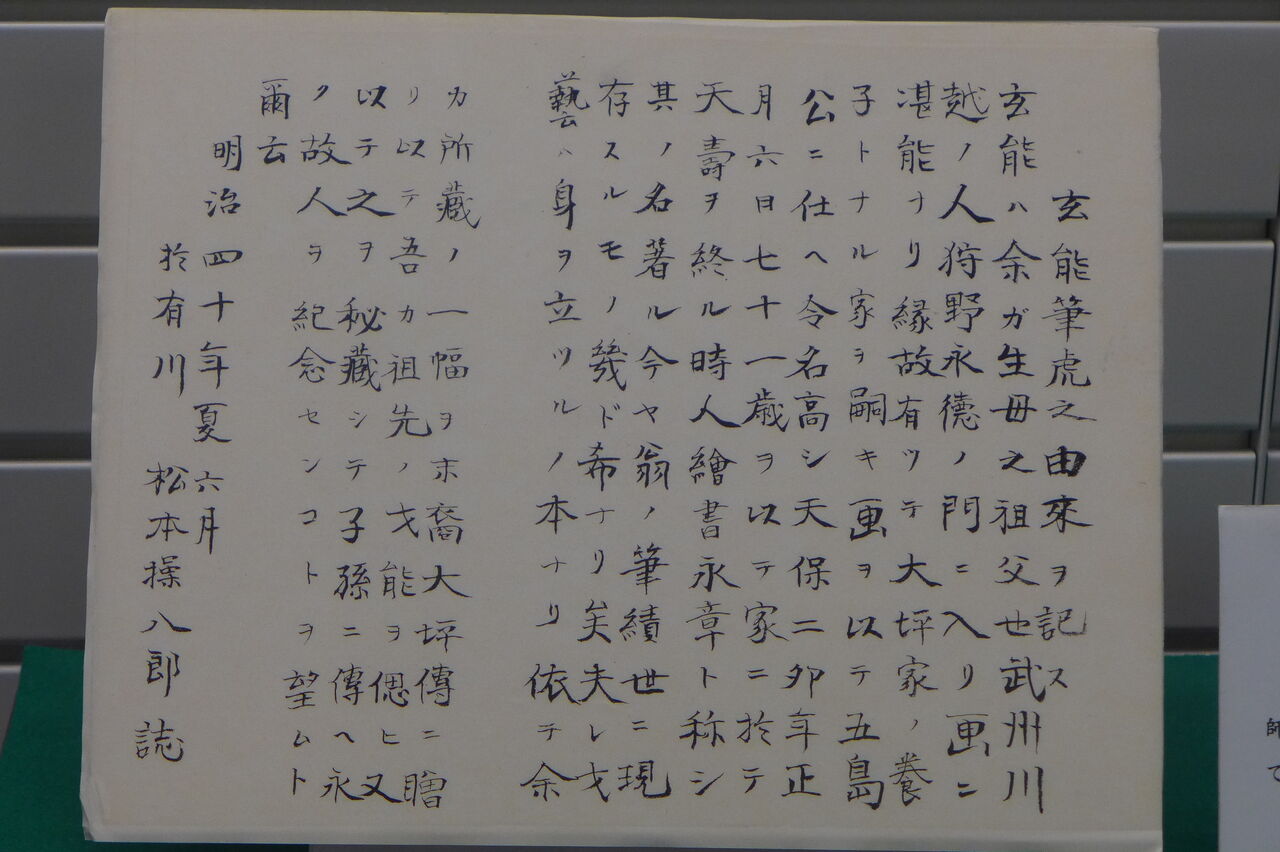 玄能筆虎之由來ヲ記ス
玄能ハ余ガ生毋之祖父也武州川
越ノ人狩野永德ノ門ニ入リ画ニ
湛能ナリ縁故有ツテ大坪家ノ養
子トナル家ヲ嗣キ画ヲ以テ五島
公ニ仕ヘ令名高シ天保二卯年正
月六日七十一歳ヲ以テ家ニ於テ
天壽ヲ終ル時人繪書永章ト称シ
其ノ名著ル今ヤ翁ノ筆績世ニ現
存スルモノ幾ド希ナリ矣夫レ戈
藝ハ身ヲ立ツルノ本ナリ依テ余
カ所藏ノ一幅ヲ末裔大坪傳ニ贈
リ以テ吾カ祖先ノ戈能ヲ偲ヒ又
以テ之ヲ秘藏シテ子孫ニ傳ヘ永
ク故人ヲ紀念センコトヲ望ムト
爾云
明治四十年夏六月
於有川 松本操八郎誌
師
て